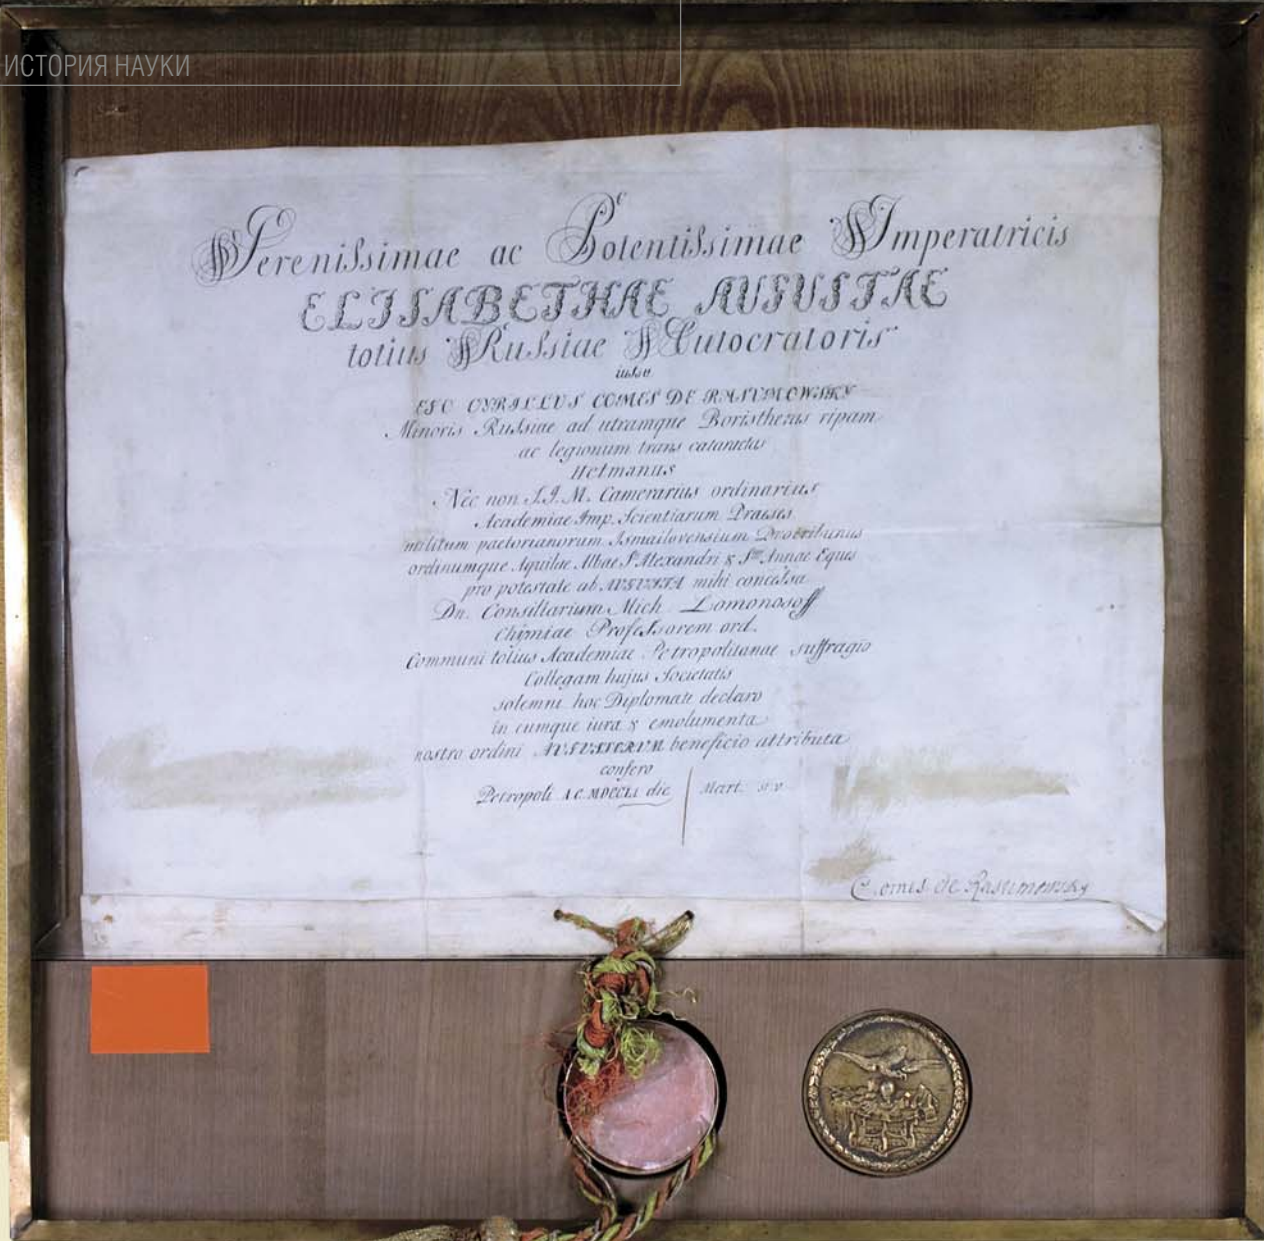 ИСТОРИЯ НАУКИ
Serenissimae ac Potentissimae Imperatricis
ELISABETHAE AUGUSTAE
totius Russiae Autocratoris
iussu
EGO CYRILLUS COMES DE RASUMOWSKY
Minoris Russiae ad utramque Boristhenis ripam
ac legionum trans
Hetmanus
Nec non S.I.M. Camerarius ordinarius
Academiae Imp. Scientiarum Praeses
militum praetorianorum Ismailovensium Protribunus
ordinumque Aquilae Albae St Alexandri & Stae Annae Eques
pro potestate ab AUGUSTA mihi concessa
Dn. Consiliarium Mich. Lomonosoff
Chymiae Professorem ord.
Communi totius Academiae Petropolitanae suffragio
Collegam hujus Societatis
solemni hoc Diplomate declaro
in eumque iura & emolumenta
nostro ordini AUGUSTARUM beneficio attributa
confero
Petropoli A.C. MDCCLI die 1 Mart. st. v.
Comes de Rasumowsky